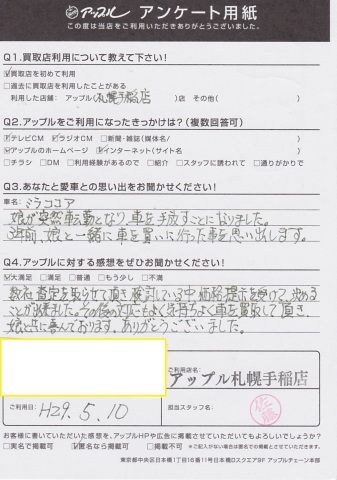 アップル アンケート用紙
この度は当店をご利用いただきありがとうございました。
Q1.買取店利用について教えて下さい!
☑買取店を初めて利用
□過去に買取店を利用したことがある
利用した店舗: アップル(札幌手稲店)店 その他( )
Q2.アップルをご利用になったきっかけは?(複数回答可)
☑テレビCM ☑ラジオCM □新聞・雑誌(媒体名/ )
☑アップルのホームページ ☑インターネット(サイト名 )
□チラシ □DM □利用経験があるので □紹介 □スタッフに誘われて □通りがかりで
Q3.あなたと愛車との思い出をお聞かせください!
車名: ミラココア
娘が突然転勤となり、車を手放すことになりました。
3年前、娘と一緒に車を買いに行った事を思い出します。
Q4.アップルに対する感想をぜひお聞かせください!
☑大満足 □満足 □普通 □もう少し □不満
数社査定を取らせて頂き検討している中、価格提示を受けて、決める
ことが出来ました。その後の対応もよく気持ちよく車を買取して頂き、
娘と共に喜んでおります。ありがとうございました。
ご利用店名:
アップル札幌手稲店
ご利用日: H29.5.10
担当スタッフ名: 佐藤
お客様に書いていただいた感想を、アップルHPや広告に掲載させていただいてもよろしいでしょうか?
□実名で掲載可 ☑匿名なら掲載可 □掲載不可 ※ご記入がない場合は匿名での掲載とさせていただきます。
東京都中央区日本橋1丁目16番11号日本橋Dスクエア9F アップルチェーン本部